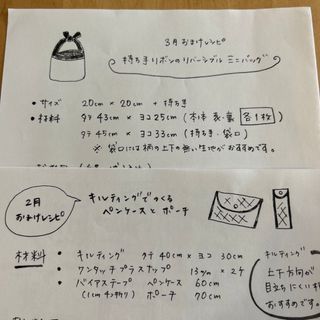 3月 おまけレシピ
持ち手リボンのリバーシブル ミニバッグ
・サイズ 20cm × 20cm + 持ち手
・材料 タテ 43cm × ヨコ 25cm (本体 表・裏 各1枚)
タテ 45cm × ヨコ 33cm (持ち手・袋口)
※ 袋口には柄の上下の無い生地がおすすめです。
2月
おまけレシピ
キルティングでつくる
ペンケースとポーチ
材料
・キルティング タテ 40cm × ヨコ 30cm
・ワンタッチプラスナップ 13mm × 2ケ
・バイアステープ ペンケース 60cm
(11cm チンチャク) ポーチ 70cm
キルティング
上下方向が
目立ちにくい
おすすめです。